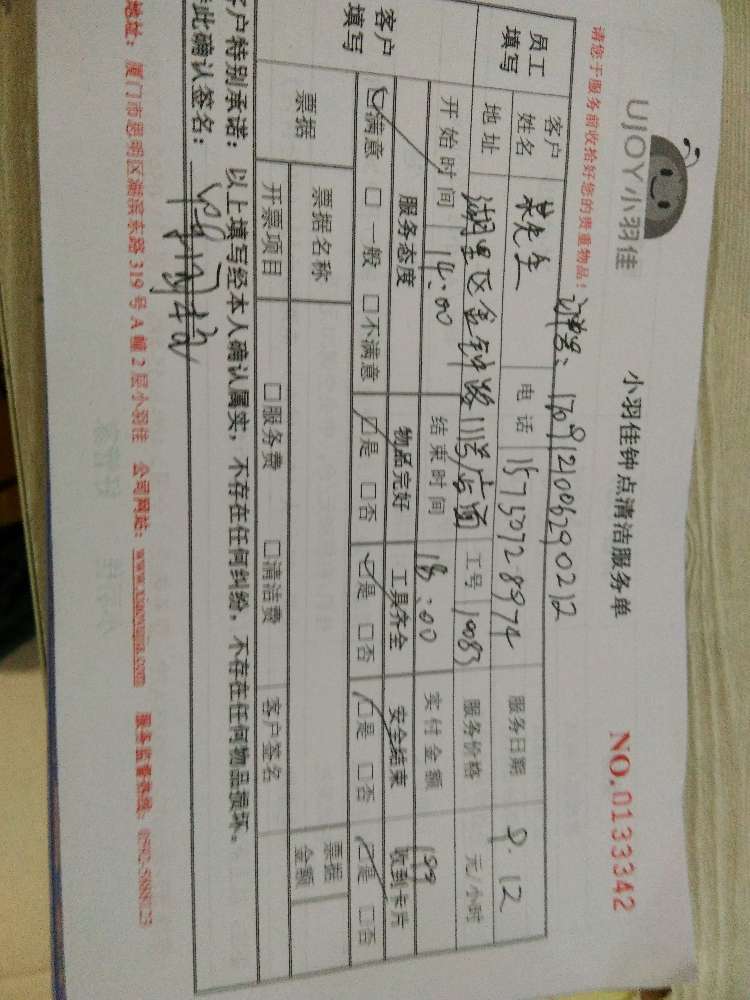 UJOY小羽佳
小羽佳钟点清洁服务单
NO.0133342
请您于服务前收拾好您的贵重物品!
1709121006290212
员工填写 客户姓名 先生 电话 15750728974 服务日期 9.12
地址 湖里区金钟路 工号 10083 服务价格 元/小时
开始时间 14:00 结束时间 18:00 实付金额 199
客户填写 服务态度 物品完好 工具齐全 安全结束 收到卡片
☑满意 □一般 □不满意 ☑是 □否 ☑是 □否 ☑是 □否 ☑是 □否
票据 票据名称 票据金额
开票项目 □服务费 □清洁费 客户签名
客户特别承诺：以上填写经本人确认属实，不存在任何纠纷，不存在任何物品损坏。
此确认签名：
地址：厦门市思明区湖滨东路319号A幢2层小羽佳 公司网站：www.xiaoyujia.com 服务监督热线：0592-5888123